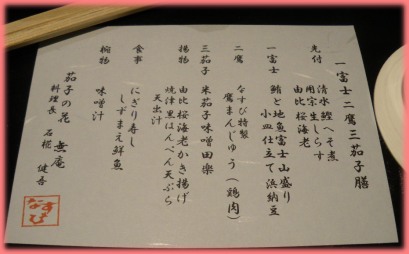 一富士二鷹三茄子膳
先付 清水 鰹へそ煮
用宗生しらす
由比 桜海老
一富士 鮪と地魚富士山盛り
小皿仕立て浜納豆
二鷹 なすび特製
鷹まんじゅう(鶏肉)
三茄子 米茄子味噌田楽
揚物 由比桜海老かき揚げ
焼津黒はんぺん天ぷら
天出汁
食事 にぎり寿し
しずまえ鮮魚
椀物 味噌汁
茄子の花 無庵
料理長 石椛 健吾
なすび